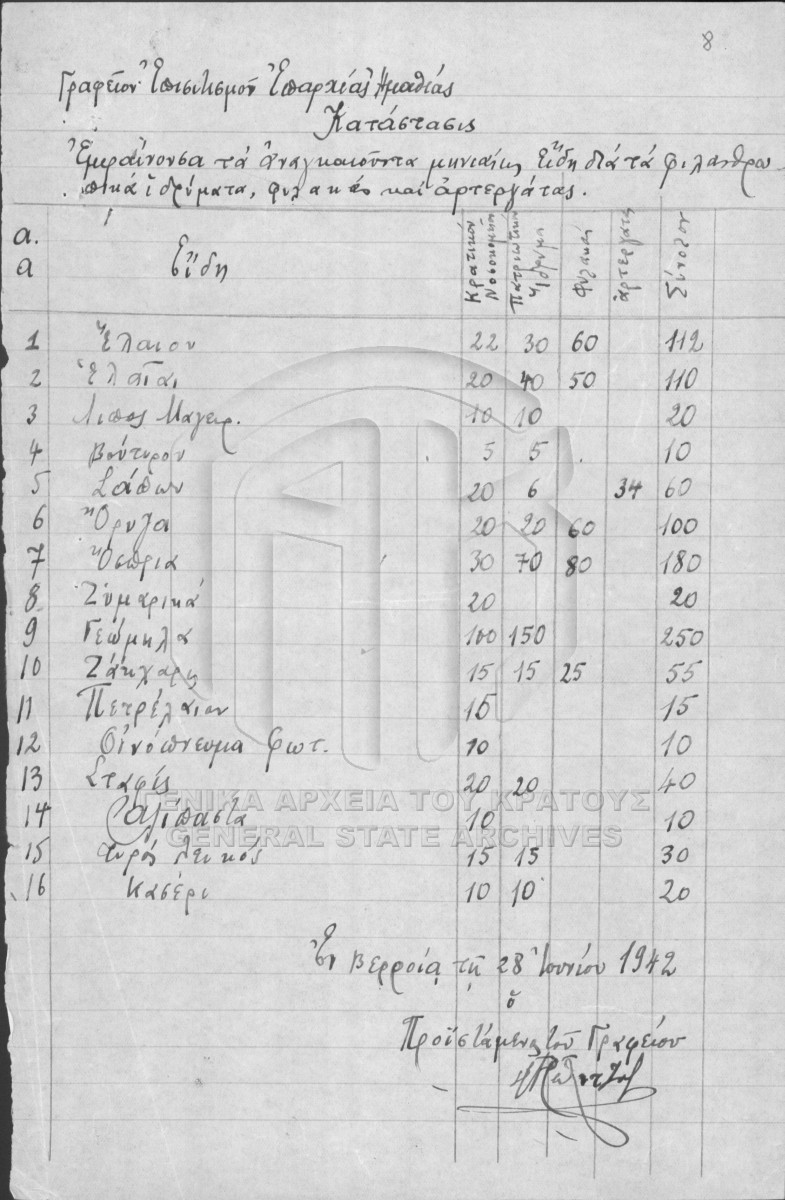 8
Γραφεῖον Ἐπισιτισμοῦ Ἐπαρχίας Ἠμαθίας
Κατάστασις
Ἐμφαίνουσα τά ἀναγκαιοῦντα μηνιαίως εἴδη διά τά φιλανθρω-
πικά ἱδρύματα, φυλακάς καί ἀρτεργάτας.
α.α Εἴδη Κρατικόν Νοσοκομεῖον Πατριωτικόν Ἵδρυμα Φυλακαί ἀρτεργάτες Σύνολον
1 Ἔλαιον 22 30 60 112
2 Ἐλαῖαι 20 40 50 110
3 Λιπος Μαγειρ. 10 10 20
4 Βούτυρον 5 5 10
5 Σάπων 20 6 34 60
6 Ὄρυζα 20 20 60 100
7 Ὄσπρια 30 70 80 180
8 Ζυμαρικά 20 20
9 Γεώμηλα 100 150 250
10 Ζάκχαρις 15 15 25 55
11 Πετρέλαιον 15 15
12 Οἰνόπνευμα φωτ. 10 10
13 Σταφίς 20 20 40
14 Ἁλίπαστα 10 10
15 τυρός λευκός 15 15 30
16 Κασέρι 10 10 20
ΓΕΝΙΚΑ ΑΡΧΕΙΑ ΤΟΥ ΚΡΑΤΟΥΣ
GENERAL STATE ARCHIVES
Ἐν Βερροίᾳ τῇ 28 Ἰουνίου 1942
ὁ
Προϊστάμενος τοῦ Γραφείου